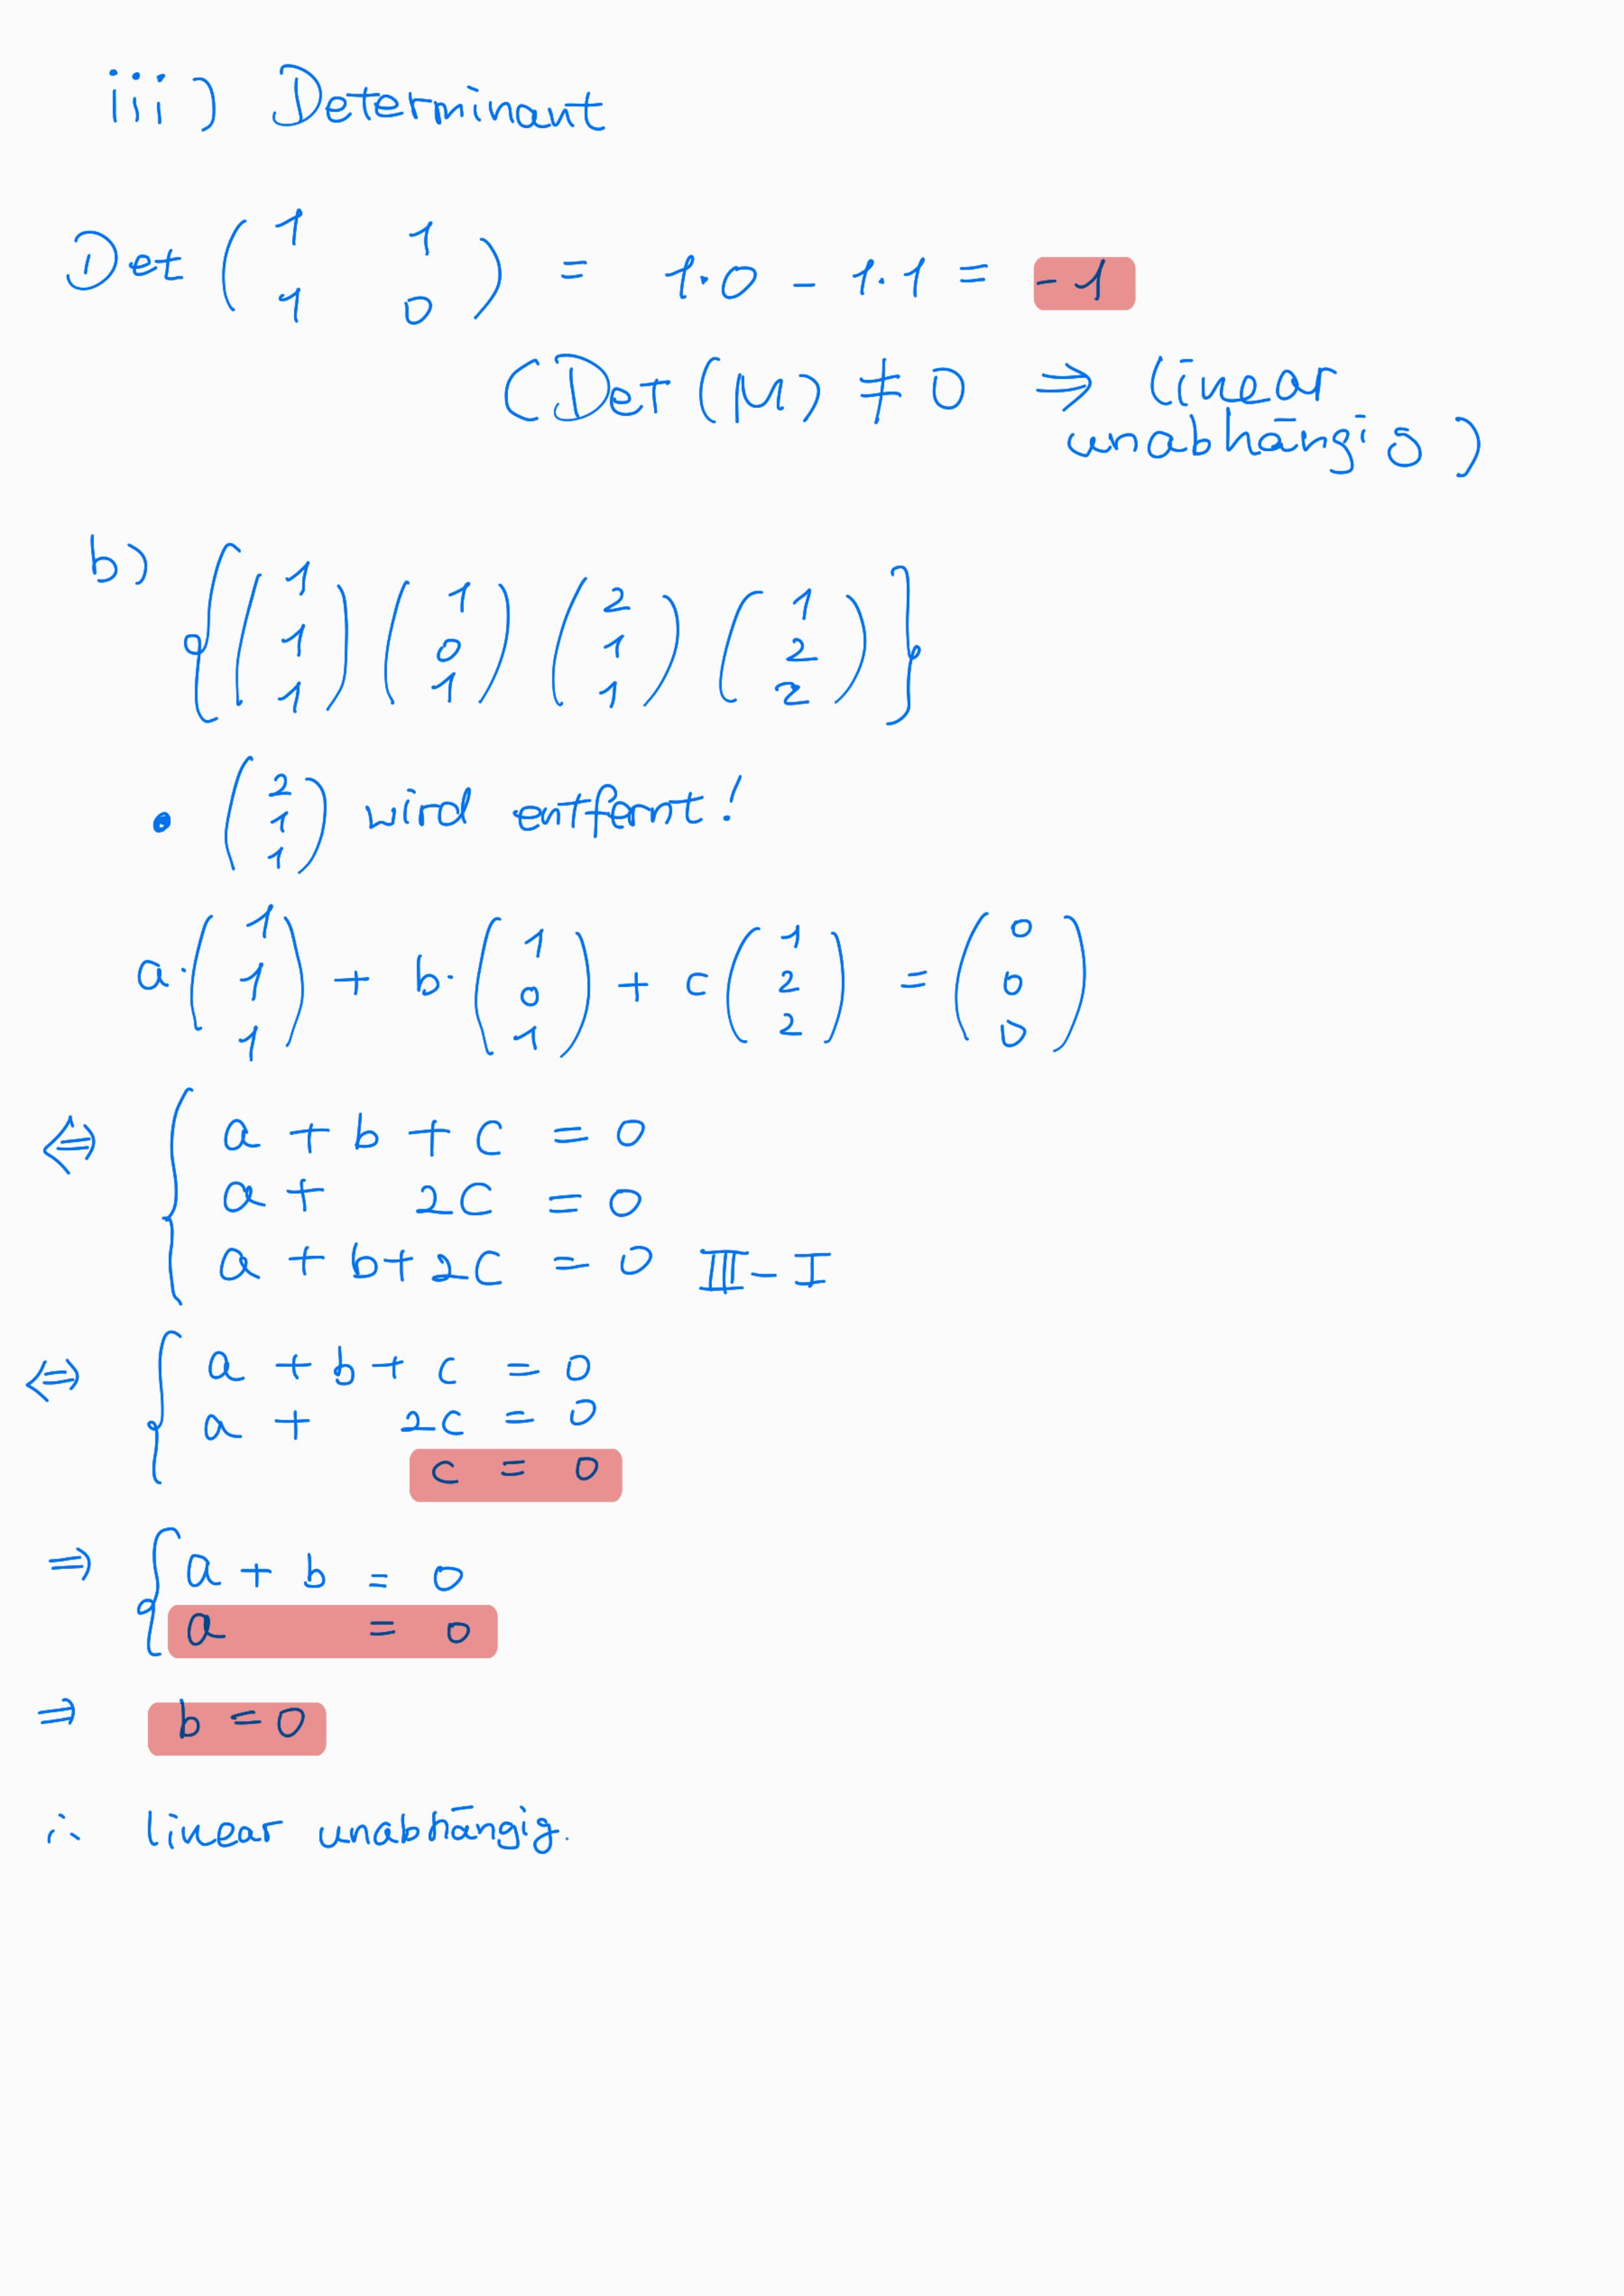 iii) Determinant
Det ( 1 1 ; 1 0 ) = 1·0 - 1·1 = -1
(Det(M) ≠ 0 ⇒ linear
unabhängig)
b) { ( 1 ; 1 ; 1 ) ( 1 ; 0 ; 1 ) ( 2 ; 1 ; 1 ) ( 1 ; 2 ; 2 ) }
• ( 2 ; 1 ; 1 ) wird entfernt!
a· ( 1 ; 1 ; 1 ) + b· ( 1 ; 0 ; 1 ) + c ( 1 ; 2 ; 2 ) = ( 0 ; 0 ; 0 )
⇔ { a + b + c = 0
a + 2c = 0
a + b + 2c = 0 III - I
⇔ { a + b + c = 0
a + 2c = 0
c = 0
⇒ { a + b = 0
a = 0
⇒ b = 0
∴ linear unabhängig.